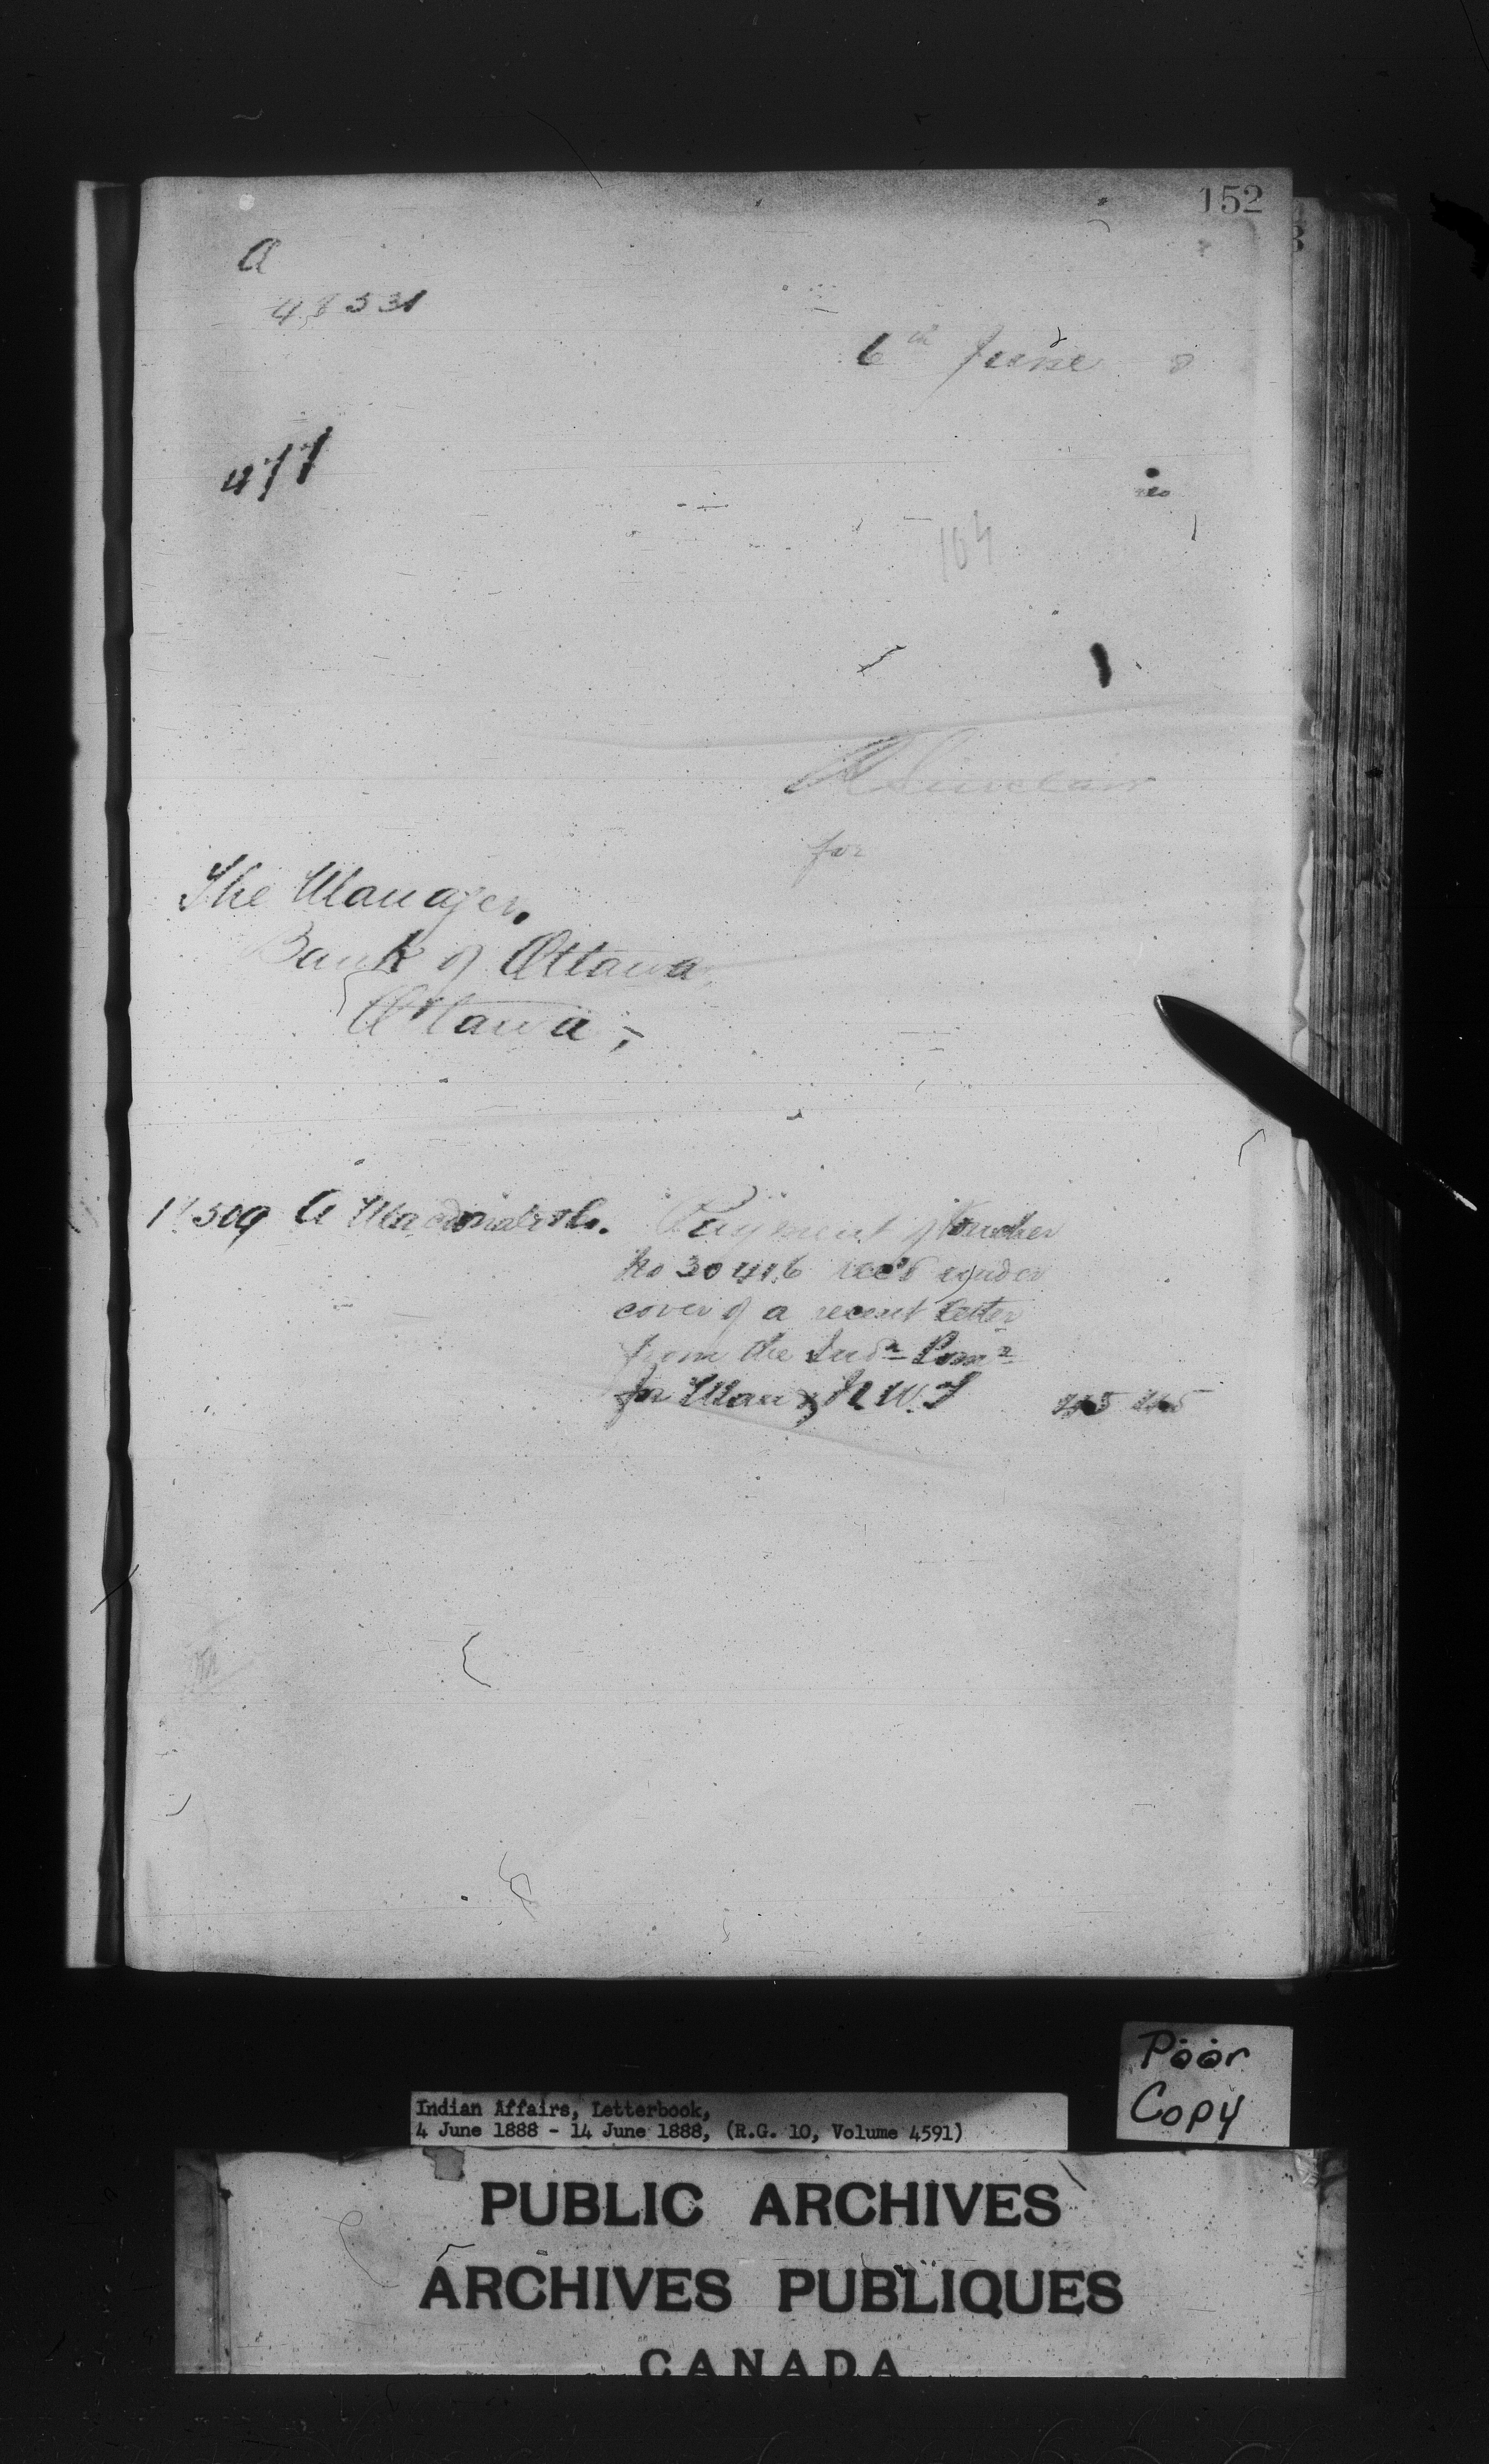 152
a
48531
6th June 8
477
104
R Sinclair
for
The Manager,
Bank of Ottawa,
Ottawa,
509 A Macdonald Co. Payment of Voucher
No 30416 rec'd under
cover of a recent letter
from the Indn Comr
for Man & N.W.T
Poor
Copy
Indian Affairs, Letterbook,
4 June 1888 - 14 June 1888, (R.G. 10, Volume 4591)
PUBLIC ARCHIVES
ARCHIVES PUBLIQUES
CANADA